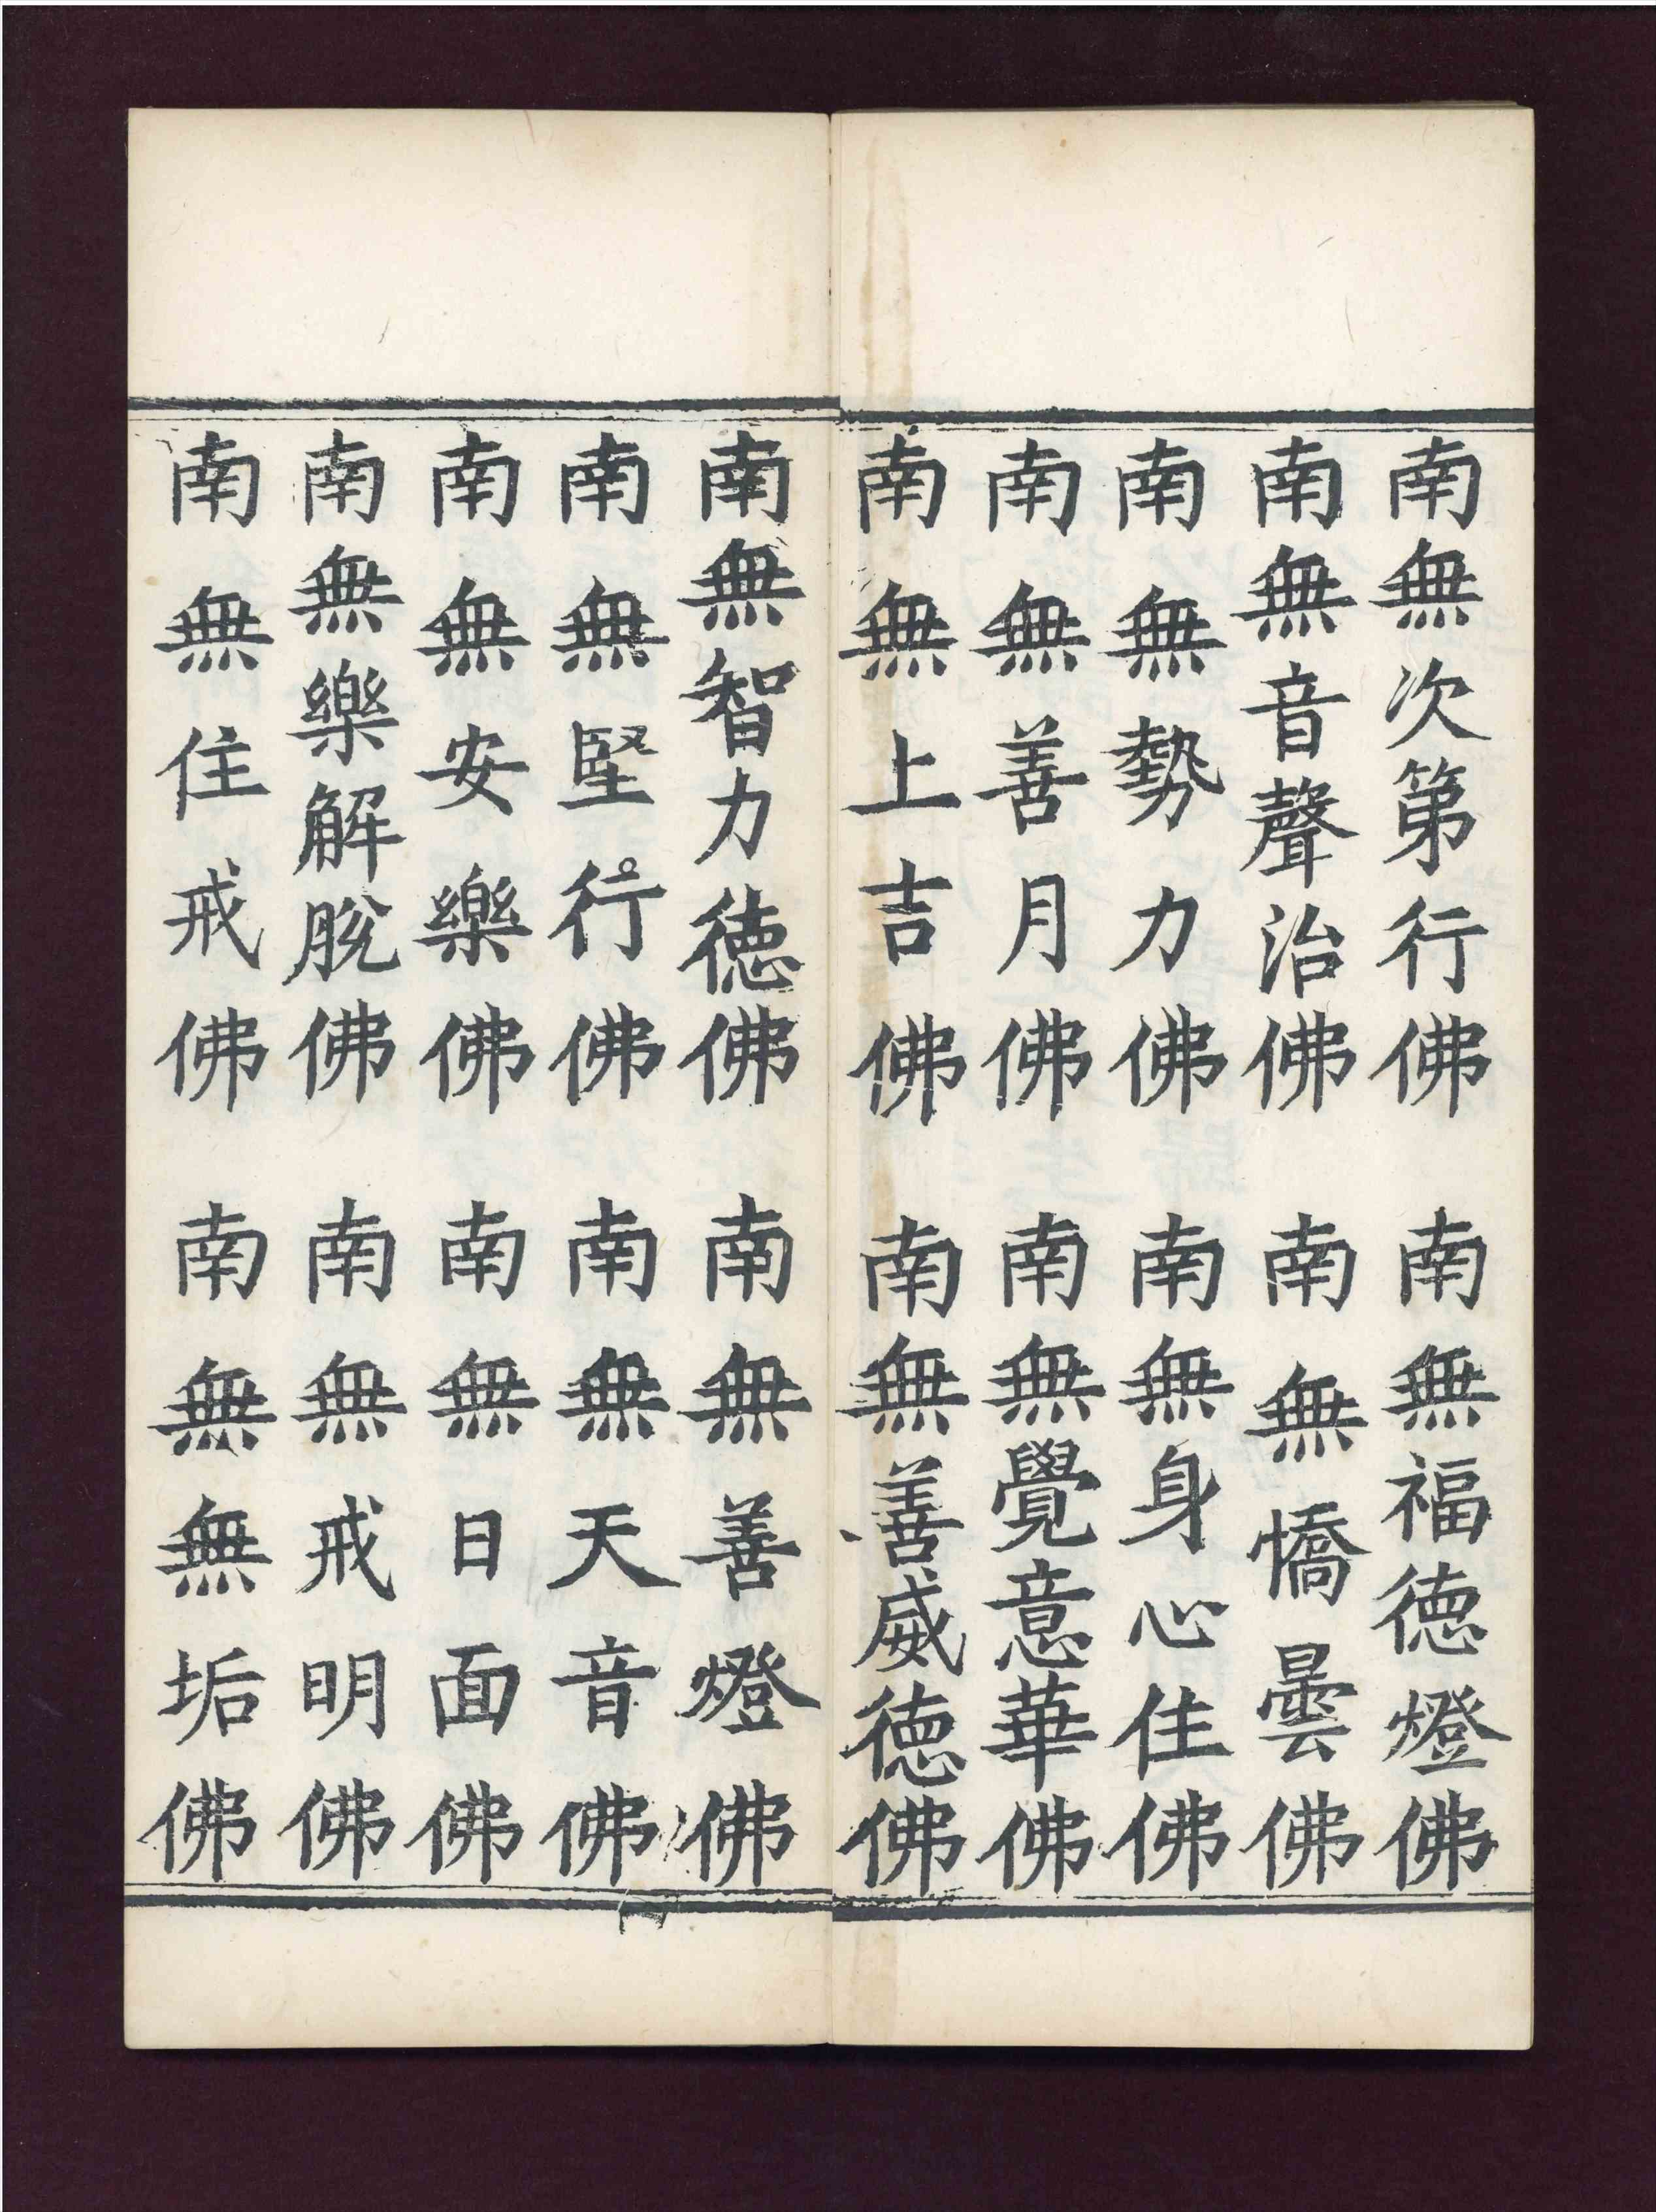 南無次第行佛　南無福德燈佛
南無音聲治佛　南無憍曇佛
南無勢力佛　南無身心住佛
南無善月佛　南無覺意華佛
南無上吉佛　南無善威德佛
南無智力德佛　南無善燈佛
南無堅行佛　南無天音佛
南無安樂佛　南無日面佛
南無樂解脫佛　南無戒明佛
南無住戒佛　南無無垢佛